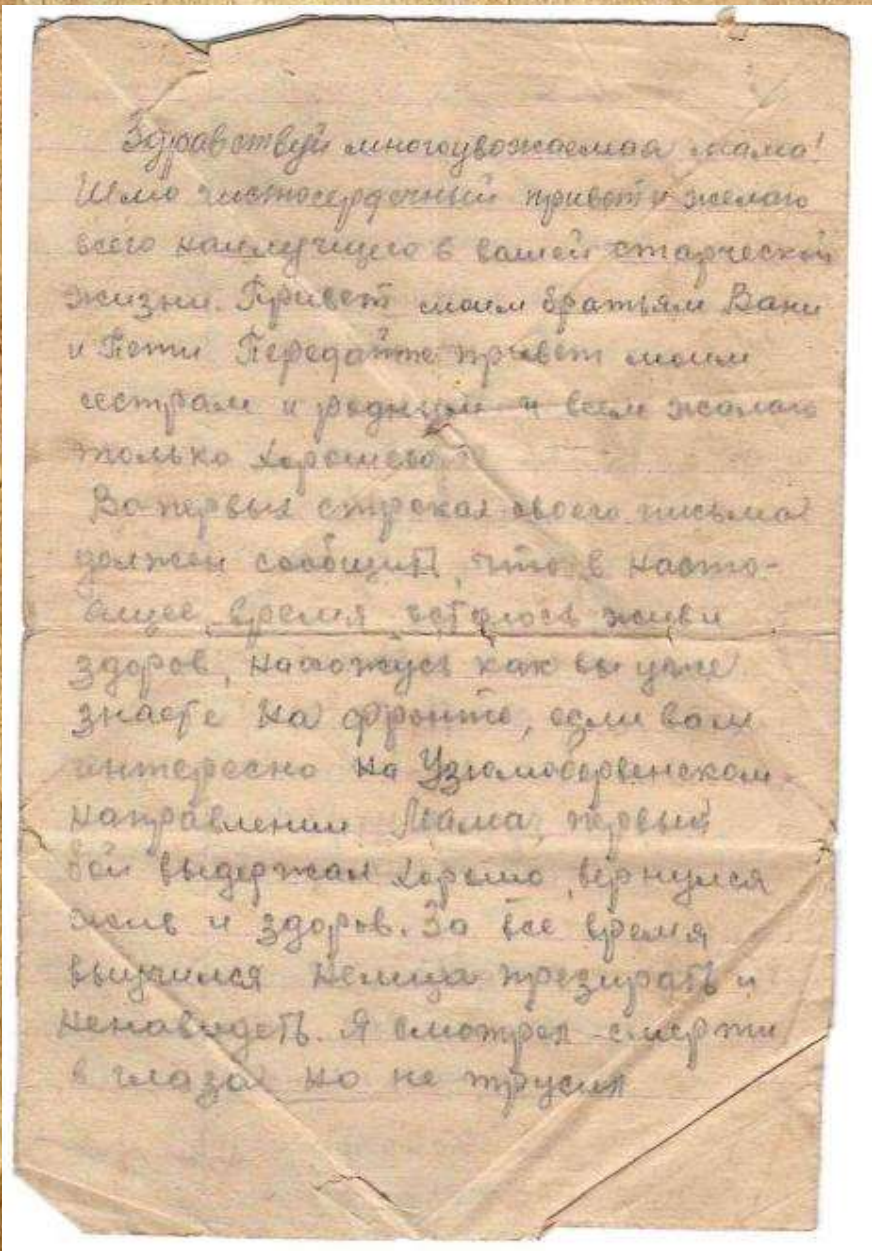 Здравствуй многоуважаемая мама!
Шлю чистосердечный привет и желаю
всего наилучшего в вашей старческой
жизни. Привет моим братьям Вани
и Пети Передайте привет моим
сестрам и родным и всем желаю
только хорошего
Во первых строках своего письма
должен сообщить, что в насто-
ящее время остаюсь жив и
здоров, нахожусь как вы уже
знаете на фронте, если вам
интересно на
направлении Мама, первый
бой выдержал хорошо, вернулся
жив и здоров. За все время
выучился немца презирать и
ненавидеть. Я смотрел смерти
в глаза но не трусил